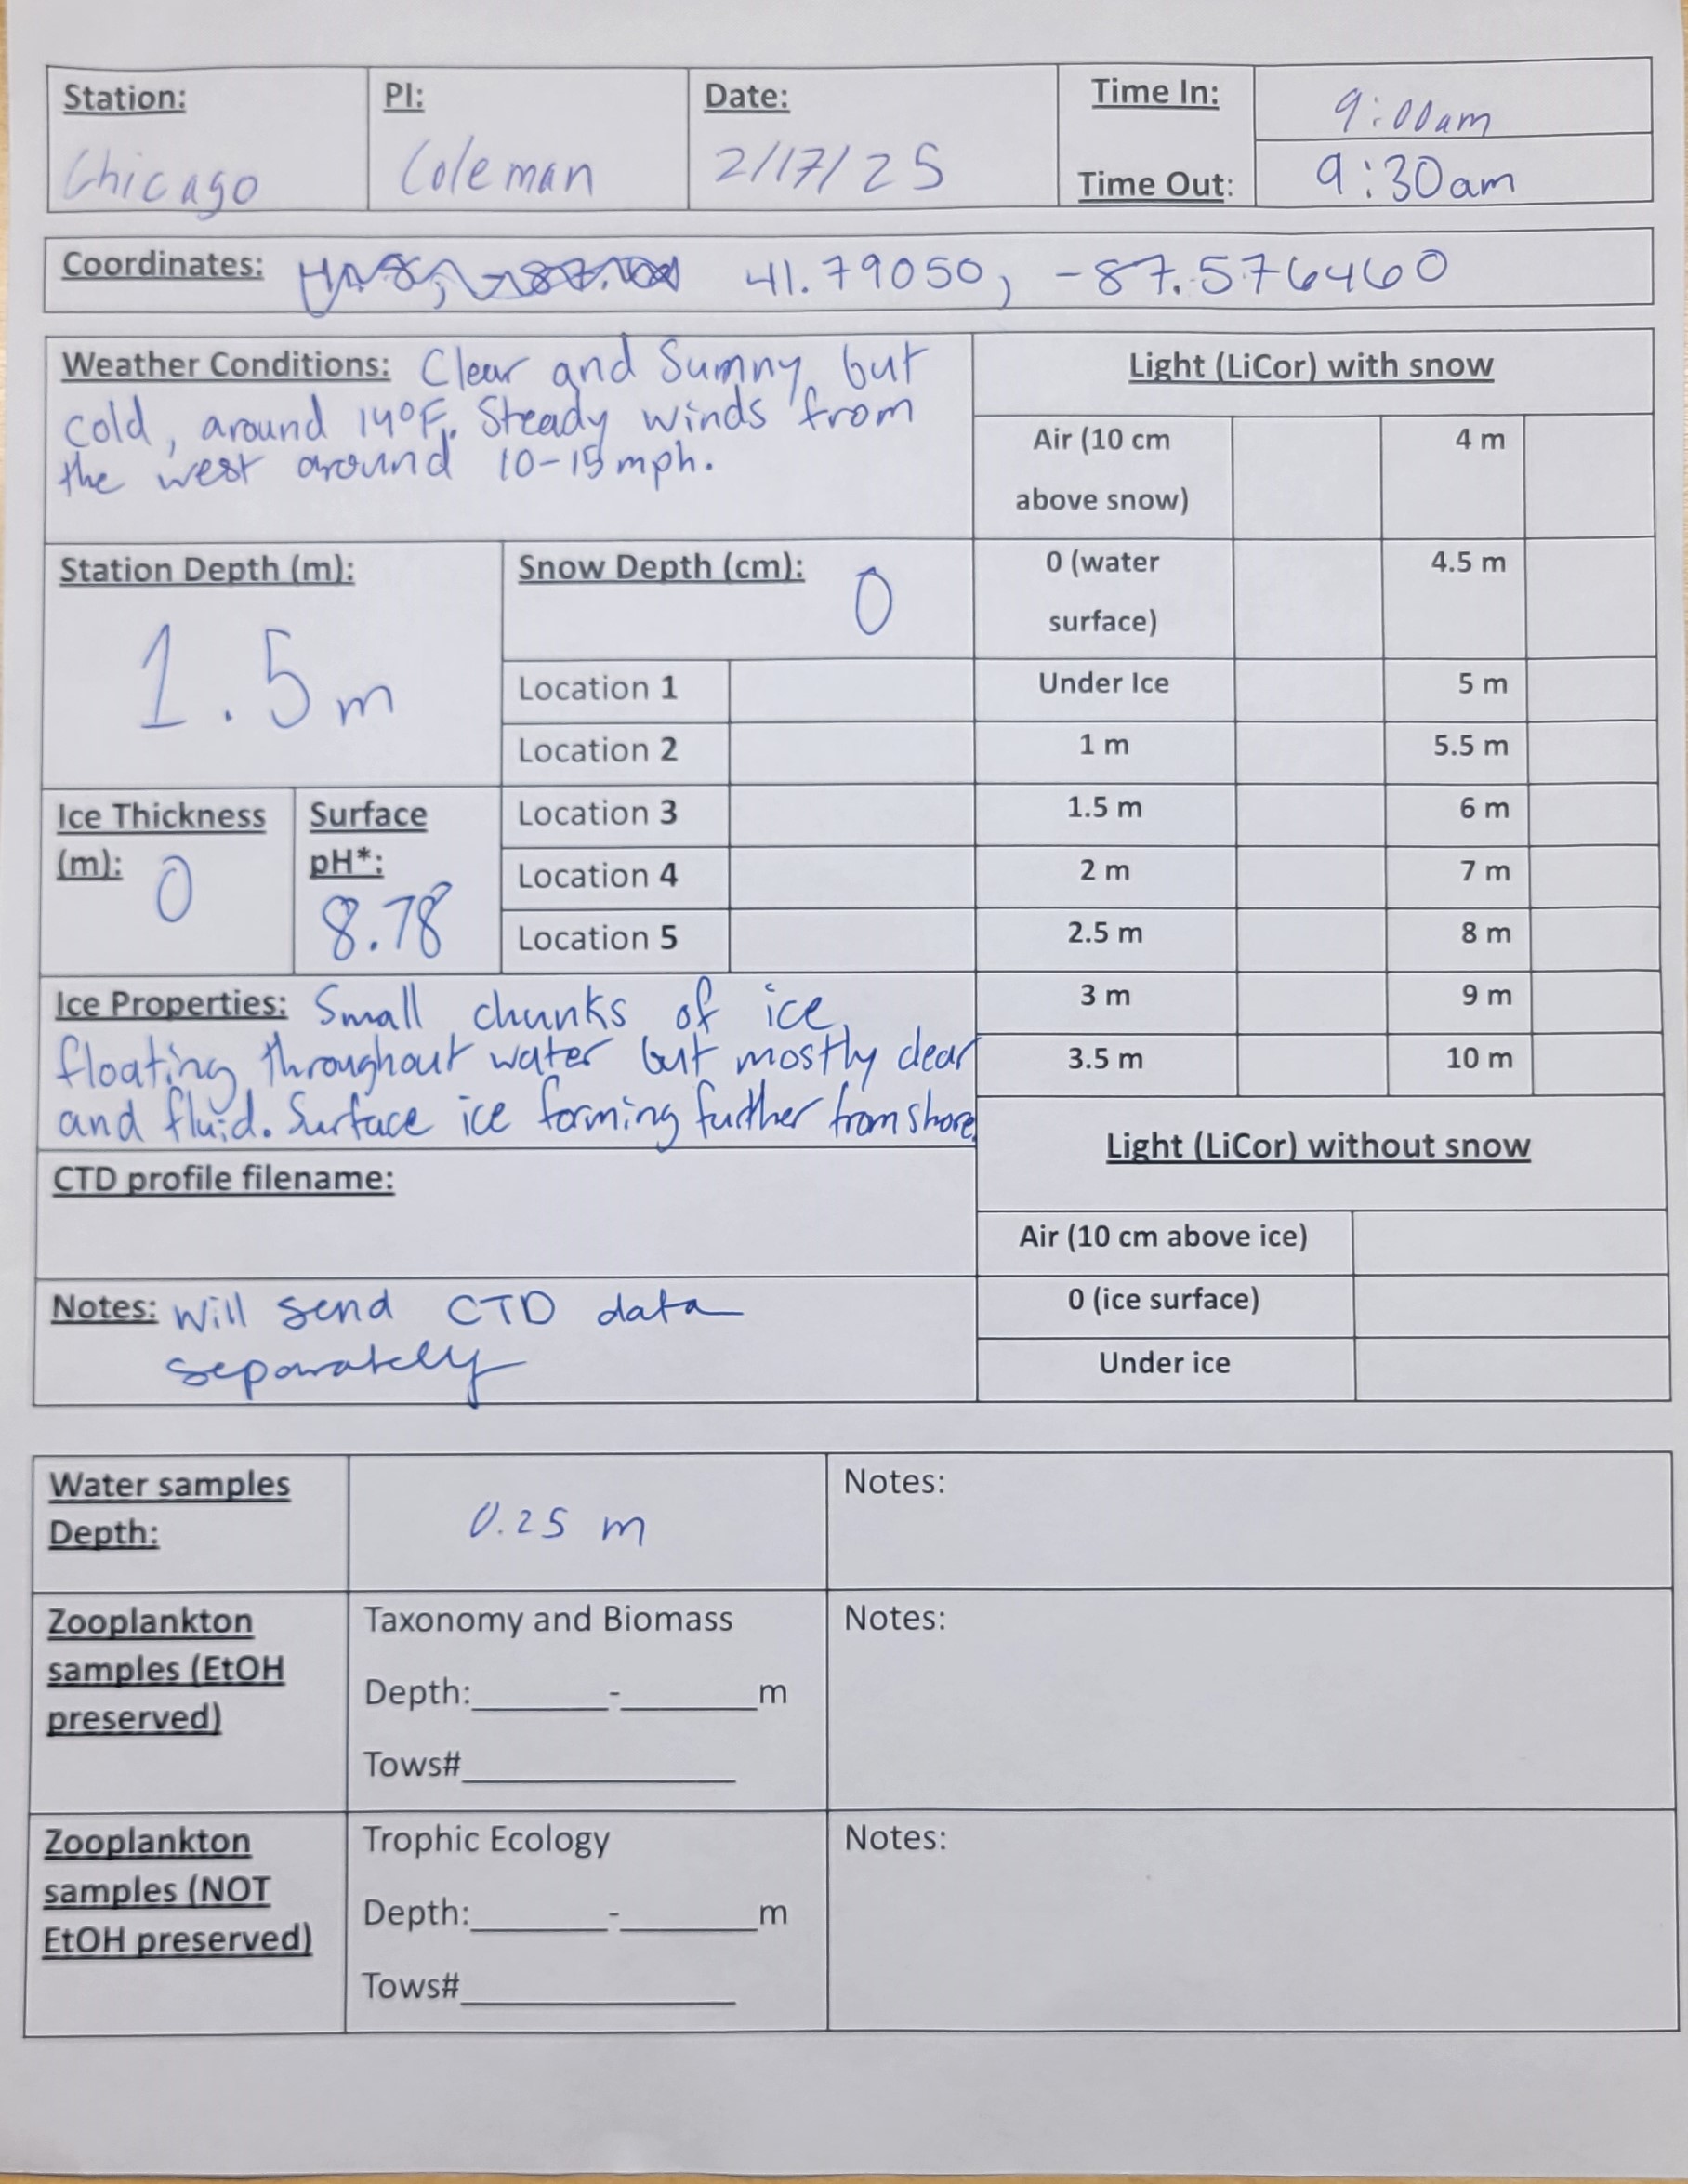 Station: PI: Date: Time In: 9:00am
Chicago Coleman 2/17/25 Time Out: 9:30am
Coordinates: 41.79050, -87.576460
Weather Conditions: Clear and Sunny, but
cold, around 14°F. Steady winds from
the west around 10-15 mph.
Station Depth (m):
1.5 m
Snow Depth (cm): 0
Location 1
Location 2
Location 3
Location 4
Location 5
Ice Thickness
(m): 0
Surface
pH*:
8.78
Ice Properties: Small chunks of ice
floating throughout water but mostly clear
and fluid. Surface ice forming further from shore.
CTD profile filename:
Notes: Will send CTD data
separately
Light (LiCor) with snow
Air (10 cm 4 m
above snow)
0 (water 4.5 m
surface)
Under Ice 5 m
1 m 5.5 m
1.5 m 6 m
2 m 7 m
2.5 m 8 m
3 m 9 m
3.5 m 10 m
Light (LiCor) without snow
Air (10 cm above ice)
0 (ice surface)
Under ice
Water samples
Depth:
0.25 m
Notes:
Zooplankton
samples (EtOH
preserved)
Taxonomy and Biomass
Depth:_______-_______m
Tows#______________
Notes:
Zooplankton
samples (NOT
EtOH preserved)
Trophic Ecology
Depth:_______-_______m
Tows#______________
Notes: